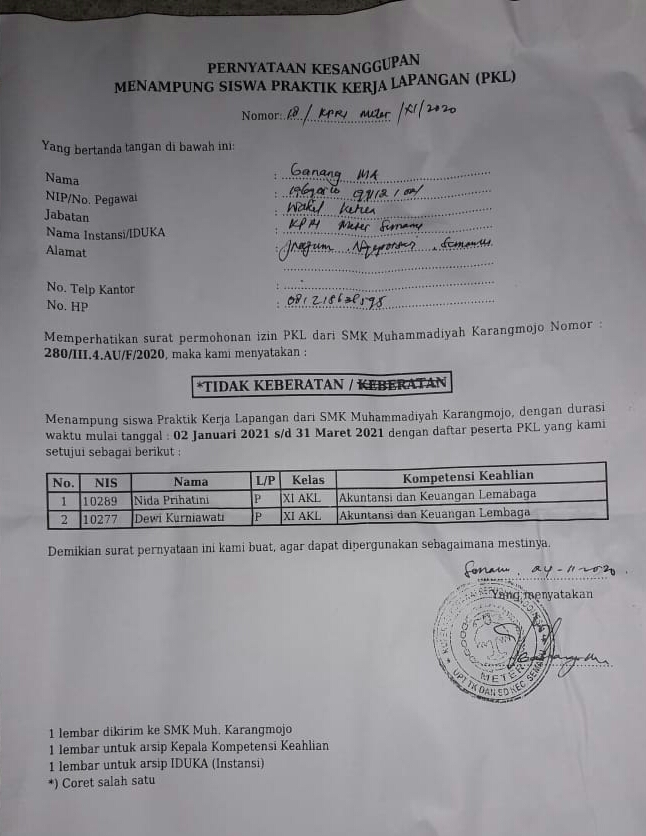 PERNYATAAN KESANGGUPAN
MENAMPUNG SISWA PRAKTIK KERJA LAPANGAN (PKL)
Nomor: 18/ KPRI Meter /XI/2020
Yang bertanda tangan di bawah ini:
Nama : Ganang MA
NIP/No. Pegawai :
Jabatan : Wakil Ketua
Nama Instansi/IDUKA : KPRI Meter Semanu
Alamat : Jragum, Ngeposari, Semanu
No. Telp Kantor :
No. HP :
Memperhatikan surat permohonan izin PKL dari SMK Muhammadiyah Karangmojo Nomor :
280/III.4.AU/F/2020, maka kami menyatakan :
*TIDAK KEBERATAN / KEBERATAN
Menampung siswa Praktik Kerja Lapangan dari SMK Muhammadiyah Karangmojo, dengan durasi
waktu mulai tanggal : 02 Januari 2021 s/d 31 Maret 2021 dengan daftar peserta PKL yang kami
setujui sebagai berikut :
No. NIS Nama L/P Kelas Kompetensi Keahlian
1 10289 Nida Prihatini P XI AKL Akuntansi dan Keuangan Lemabaga
2 10277 Dewi Kurniawati P XI AKL Akuntansi dan Keuangan Lembaga
Demikian surat pernyataan ini kami buat, agar dapat dipergunakan sebagaimana mestinya.
Semanu, 24-11-2020.
Yang menyatakan
METER
UPT TK DAN SD KEC. SEMANU
1 lembar dikirim ke SMK Muh. Karangmojo
1 lembar untuk arsip Kepala Kompetensi Keahlian
1 lembar untuk arsip IDUKA (Instansi)
*) Coret salah satu